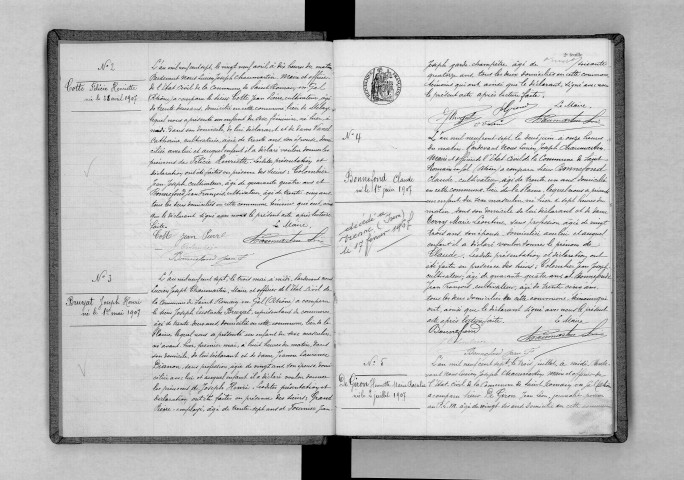 N° 2
Cotte Félicie Henriette
née le 28 avril 1907
L'an mil neuf cent sept, le vingt neuf avril à dix heures du matin
Pardevant Nous Lucien Joseph Chaumartin Maire et officier
de l'Etat Civil de la Commune de Saint Romain en Gal
(Rhône) a comparu le sieur Cotte Jean Pierre, cultivateur, âgé
de trente deux ans, domicilié en cette commune, lieu de
lequel nous a présenté un enfant du sexe féminin, né hier à
midi, dans son domicile, de lui déclarant, et de dame
cultivateur, âgée de trente ans son épouse, domi
ciliée avec lui et auquel enfant il a déclaré vouloir donner les
prénoms de Félicie Henriette. Lesdites présentation et
déclaration ont été faites en présence des sieurs : Colombier
Jean Joseph, cultivateur, âgé de quarante quatre ans et
Bonnefond Jean François, cultivateur, âgé de trente cinq ans
tous les deux domiciliés en cette commune, témoins qui ont, ainsi
que le déclarant, signé avec nous le présent acte après lecture
faite.
Le Maire,
Cotte Jean Pierre
Chaumartin
N° 3
Bruyat Joseph Henri
né le 1er mai 1907
L'an mil neuf cent sept, le trois mai à midi, Pardevant nous
Lucien Joseph Chaumartin, Maire et officier de l'Etat Civil de
la Commune de Saint Romain en Gal (Rhône) a comparu
le sieur Joseph Bruyat, représentant de commerce
âgé de trente deux ans, domicilié en cette commune, lieu de la
Plaine, lequel nous a présenté un enfant du sexe masculin,
né avant hier premier mai, à huit heures du matin, dans
son domicile, de lui déclarant et de dame Jeanne Laurence
sans profession, âgée de vingt neuf ans, son épouse, domi
ciliée avec lui et auquel enfant il a déclaré vouloir donner
les prénoms de Joseph Henri. Lesdites présentation et
déclaration ont été faites en présence des sieurs : Grand
Pierre employé, âgé de trente sept ans et Fournier Jean
Joseph garde champêtre, âgé de soixante
quatorze ans, tous les deux domiciliés en cette commune,
témoins qui ont, ainsi que le déclarant, signé avec nous
le présent acte après lecture faite.
Le Maire
Chaumartin
N° 4
Bonnefond Claude
né le 1er juin 1907
décédé à
Vienne (Isère)
le 17 février
L'an mil neuf cent sept, le deux juin à onze heures
du matin Pardevant Nous Lucien Joseph Chaumartin
Maire et officier de l'Etat Civil de la Commune de Saint
Romain en Gal (Rhône) a comparu le sieur Bonnefond
Claude, cultivateur, âgé de trente un ans, domicilié
en cette commune, lieu de la Plaine, lequel nous a présenté
un enfant du sexe masculin, né hier à sept heures du
matin, dans son domicile, de lui déclarant et de dame
Marie Léontine, sans profession, âgée de vingt
trois ans, son épouse, domiciliée avec lui, et auquel
enfant il a déclaré vouloir donner le prénom de
Claude. Lesdites présentation et déclaration, ont
été faites en présence des sieurs : Colombier Jean Joseph
cultivateur, âgé de quarante quatre ans et Bonnefond
Jean François, cultivateur, âgé de trente cinq ans,
tous les deux domiciliés en cette commune, témoins qui
ont, ainsi que le déclarant, signé avec nous le présent
acte après lecture faite.
Le Maire
Bonnefond
Chaumartin
N° 5
Le Giron Henriette Marie
née le 2 juillet 1907
L'an mil neuf cent sept, le trois juillet, à midi, Parde
vant nous Lucien Joseph Chaumartin, Maire et officier de
l'Etat Civil de la Commune de Saint Romain en Gal (Rhône)
a comparu le sieur Le Giron Jean
âgé de vingt six ans, domicilié en cette commune